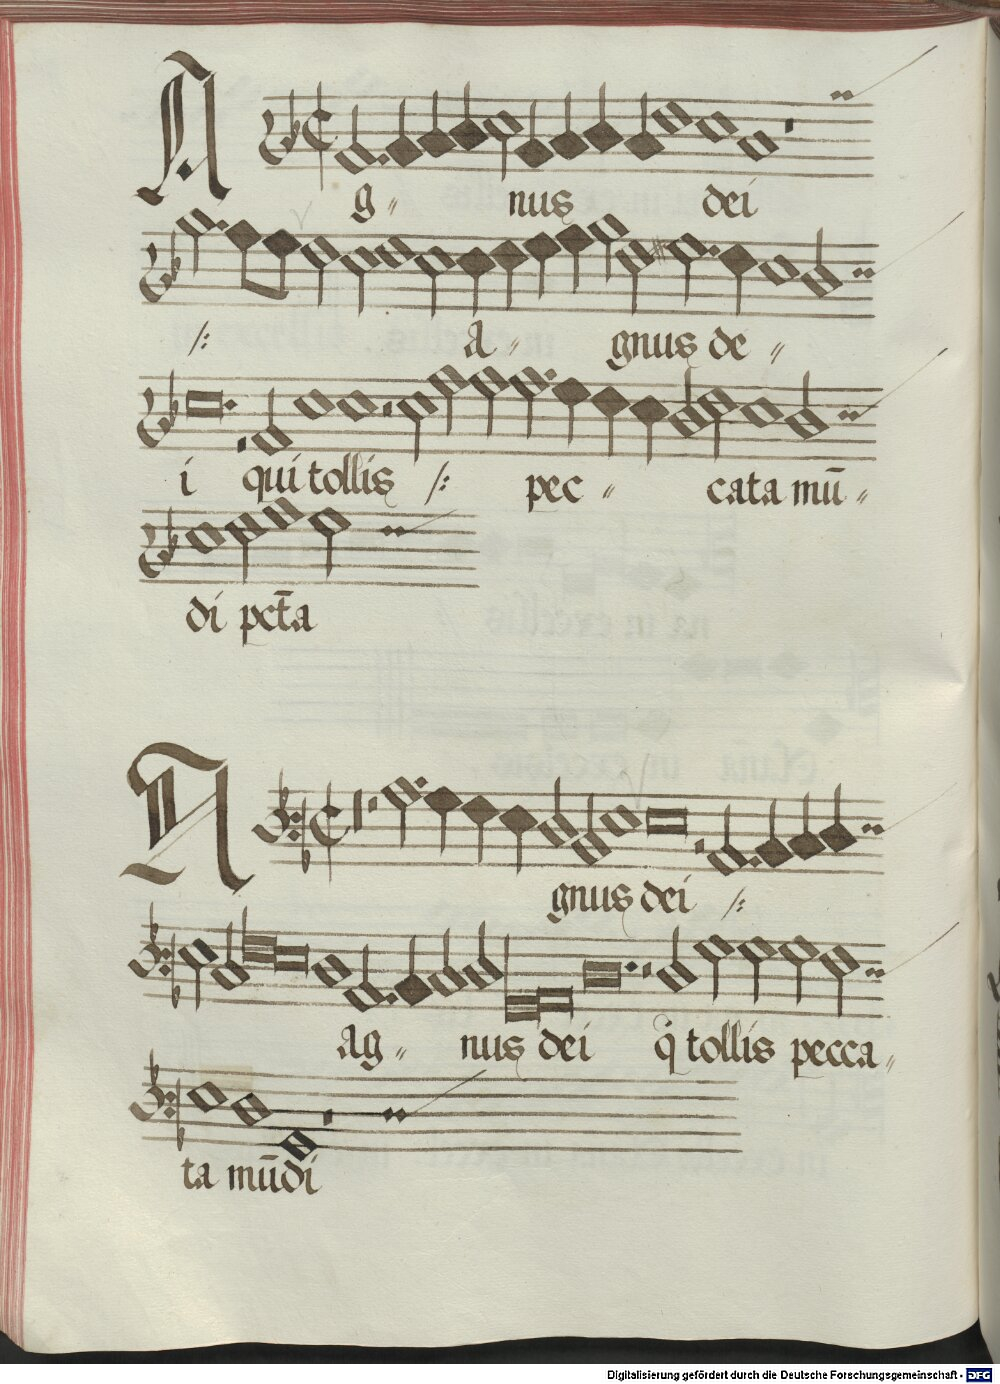 A
g〃 nus dei
/: A〃 gnus de〃
i qui tollis /: pec〃 cata mū〃
di pct̄a
A
gnus dei /:
Ag〃 nus dei q̄ tollis pecca〃
ta mūdi
Digitalisierung gefördert durch die Deutsche Forschungsgemeinschaft - DFG